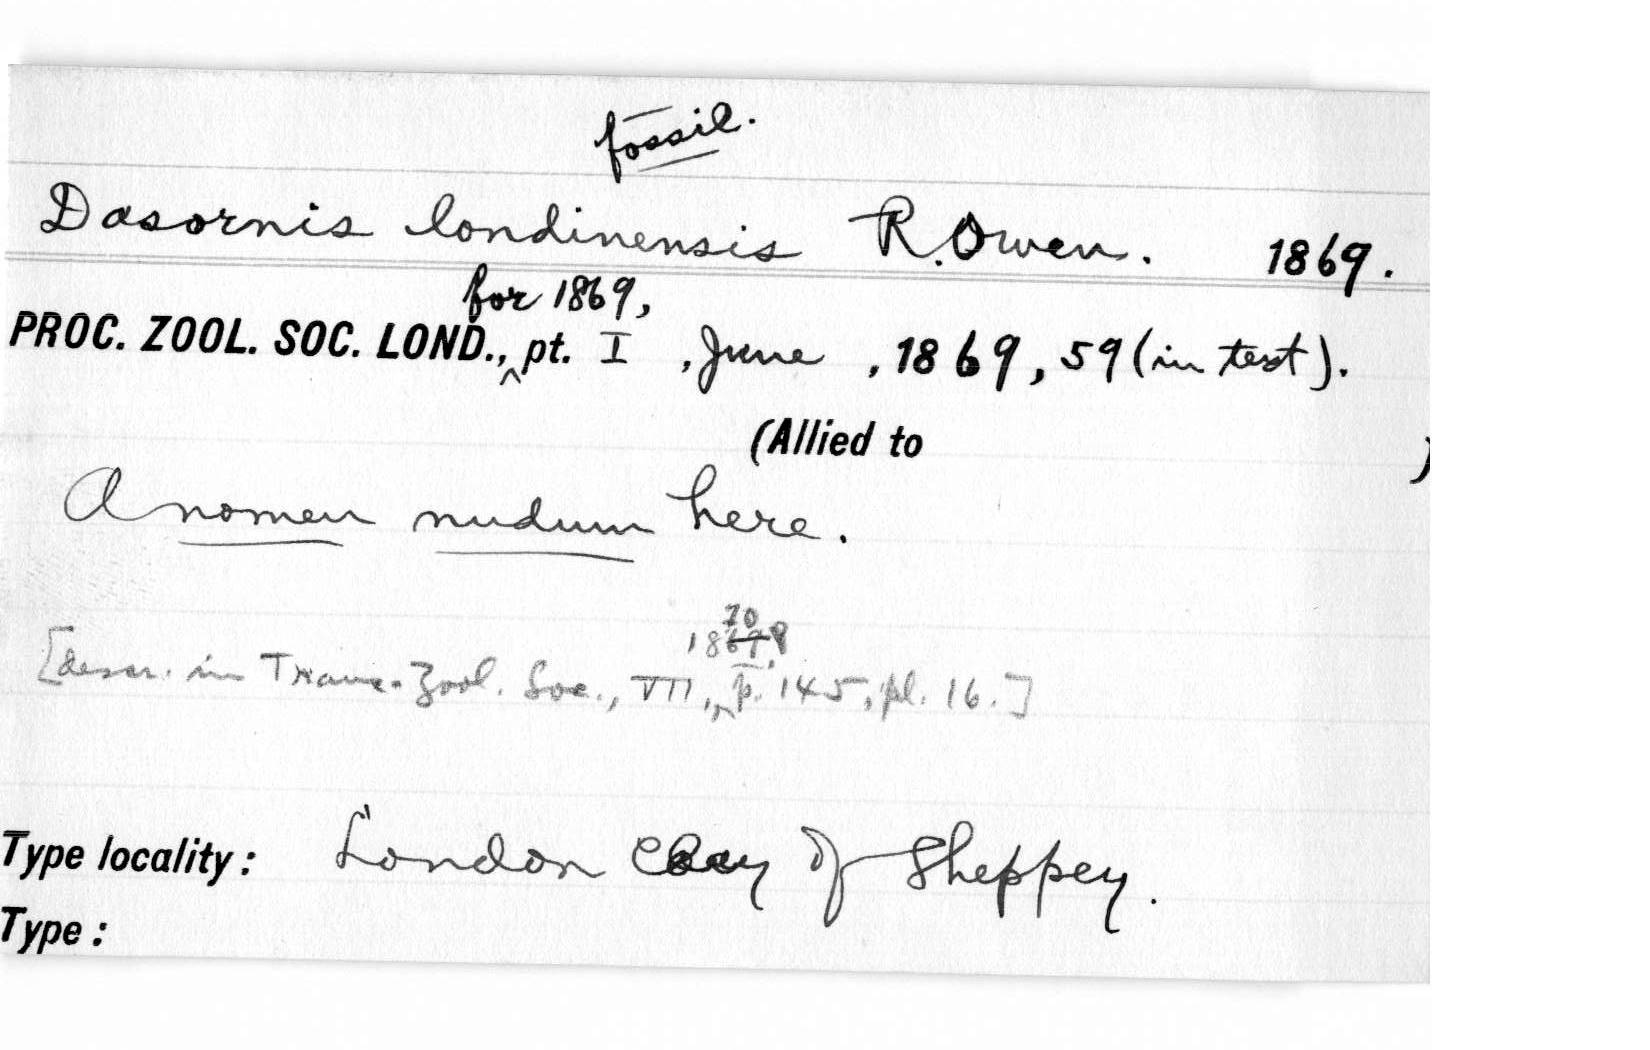 fossil.
Dasornis londinensis R. Owen. 1869.
for 1869,
PROC. ZOOL. SOC. LOND.,^ pt. I , June , 1869, 59 (in text).
(Allied to )
A nomen nudum here.
70
1869?
[descr. in Trans. Zool. Soc., VII,^ p. 145, pl. 16.]
Type locality: London Clay of Sheppey.
Type: